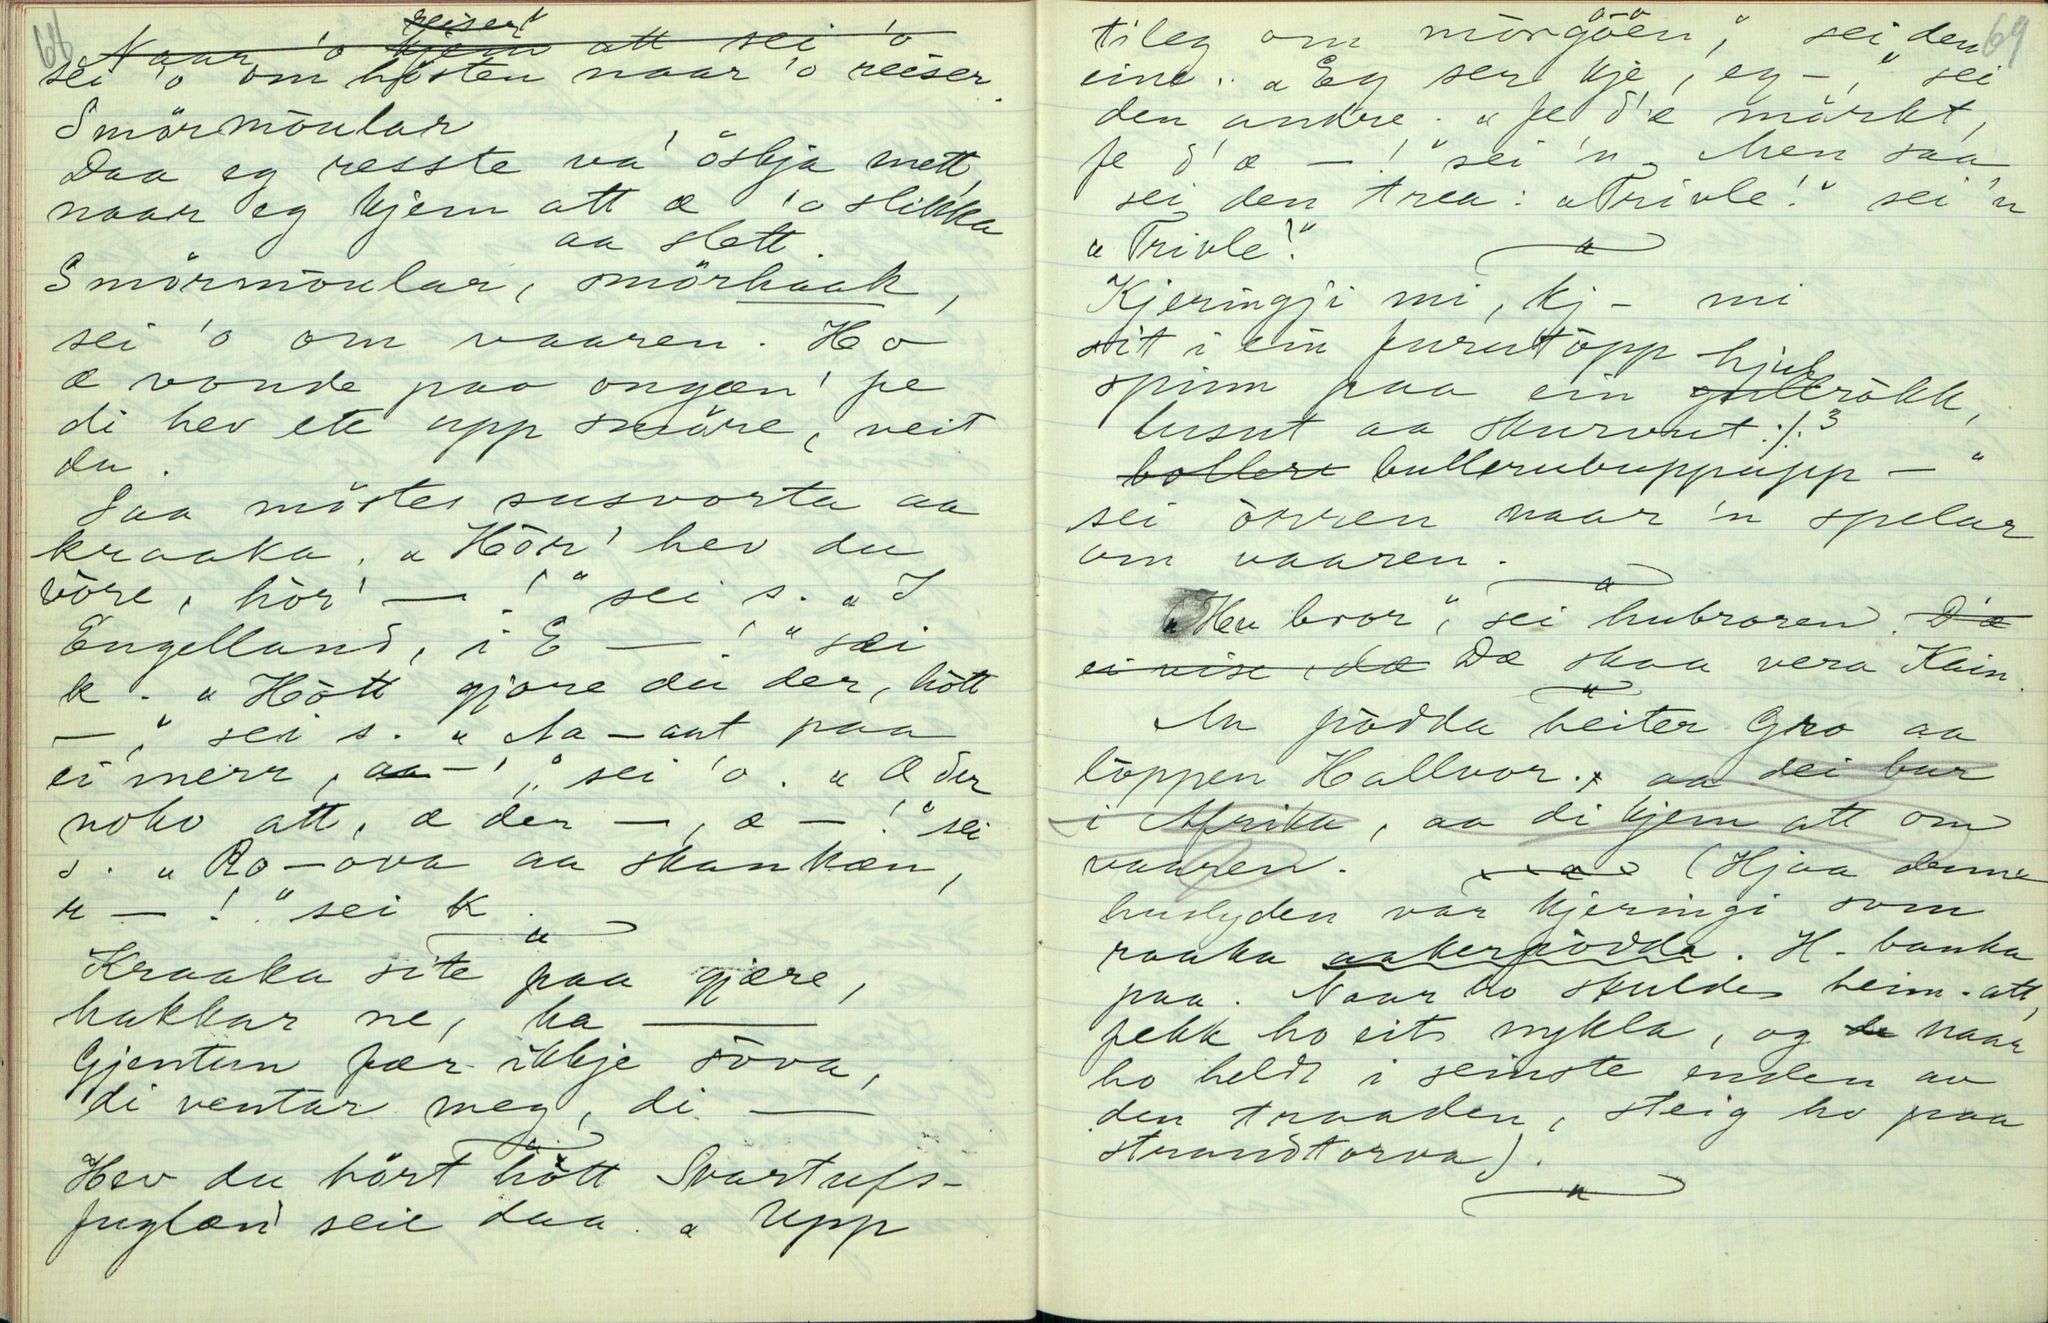 66
reiser
Naar 'o kjem att sei 'o
sei 'o om hösten naar 'o reiser.
Smörmöular
Daa eg resste va' öskja mett,
naar eg kjem att æ 'o slikka
aa slett
Smörmöular, smörhaak,
sei 'o om vaaren. Ho
æ vonde paa ongæn' fe
di hev ete upp smöre, veit
du.
Saa möstes susvorta aa
kraaka. "Hör' hev du
vöre, hör' — !" sei s. "I
Engelland, i E — !" sæi
k. "Hött gjore du der, hött
—," sei s. "Aa – aat paa
ei merr, aa – '," sei 'o. "Æ der
noko att, æ der —, æ — !" sei
s. "Ro – ova aa skankæn,
r — !" sei k.
Kraaka site paa gjære,
hakkar ne, ha ——
Gjentun fær ikkje söva,
di ventar meg, di ——
Hev du hört hött Svartufs-
fuglæn seie daa. "Upp
69
tileg om mörgöen," sei den
eine. "Eg ser kje, eg –," sei
den andre. "Fe d'æ mörkt,
fe d'æ — !" sei 'n. Men saa
sei den trea: "Trivle!" sei 'n
"Trivle!"
Kjeringji mi, kj – mi
sit i ein furutöpp
hjul
spinn paa ein gullrökk,
lusut aa skurvut :/: 3
bollere bullerubuppupp — "
sei örren naar 'n spelar
om vaaren.
"Hu bror", sei hubroren. D'æ
ei vise, dæ Dæ skaa vera Kain.
Au pödda heiter Gro aa
löppen Hallvor. aa dei bur
i Afrika, aa di kjem att om
vaaren. (Hjaa denne
huslyden var kjeringi som
raaka aakerpödda. H. banka
paa. Naar ho skulde heim-att,
fekk ho eit nykla, og de naar
ho heldt i seinste enden av
den traaden, steig ho paa
strandtorva).